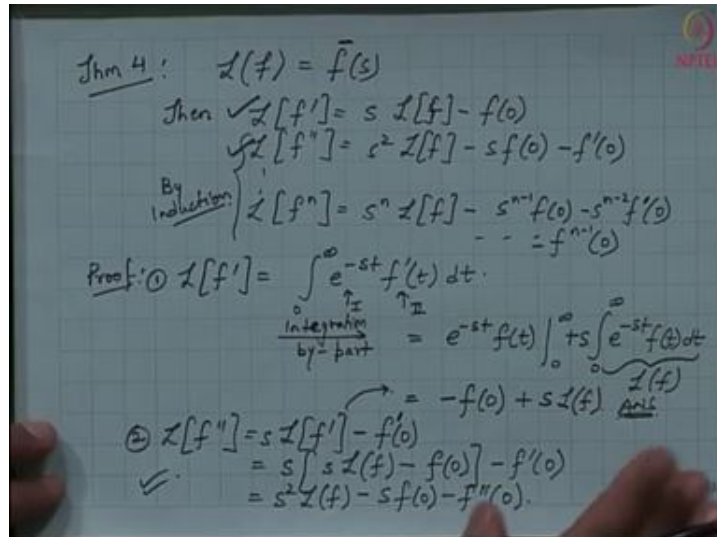 NPTEL
Thm 4: L(f) = f̄(s)
Then ✓ L[f'] = s L[f] - f(0)
✓ L[f''] = s² L[f] - s f(0) - f'(0)
By Induction { L[fⁿ] = sⁿ L[f] - sⁿ⁻¹ f(0) - sⁿ⁻² f'(0)
- - - fⁿ⁻¹(0)
Proof: ① L[f'] = ∫₀^∞ e^(-st) f'(t) dt.
↑I ↑II
integration by-part = e^(-st) f(t) |₀^∞ + s ∫₀^∞ e^(-st) f(t) dt
L(f)
= -f(0) + s L(f) Ans
② L[f''] = s L[f'] - f'(0)
= s [s L(f) - f(0)] - f'(0)
✓. = s² L(f) - s f(0) - f''(0).